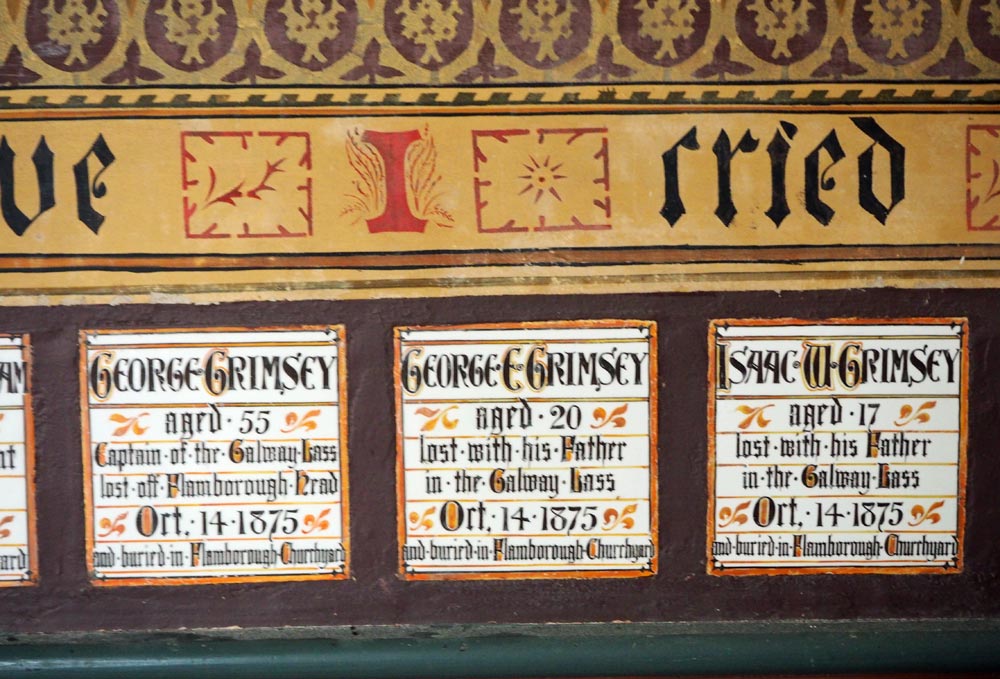 ve I cried
AM
nt
ard
GEORGE·GRIMSEY
aged·55
Captain·of·the·Galway·Lass
lost·off·Flamborough·Head
Oct,·14·1875
and·buried·in·Flamborough·Churchyard
GEORGE·E·GRIMSEY
aged·20
lost·with·his·Father
in·the·Galway·Lass
Oct,·14·1875
and·buried·in·Flamborough·Churchyard
ISAAC·W·GRIMSEY
aged·17
lost·with·his·Father
in·the·Galway·Lass
Oct,·14·1875
and·buried·in·Flamborough·Churchyard